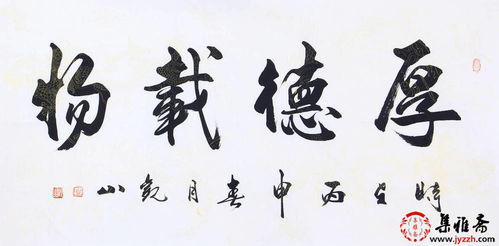 厚德載物
時在丙申春月觀山
集雅斋
www.jyzzh.com